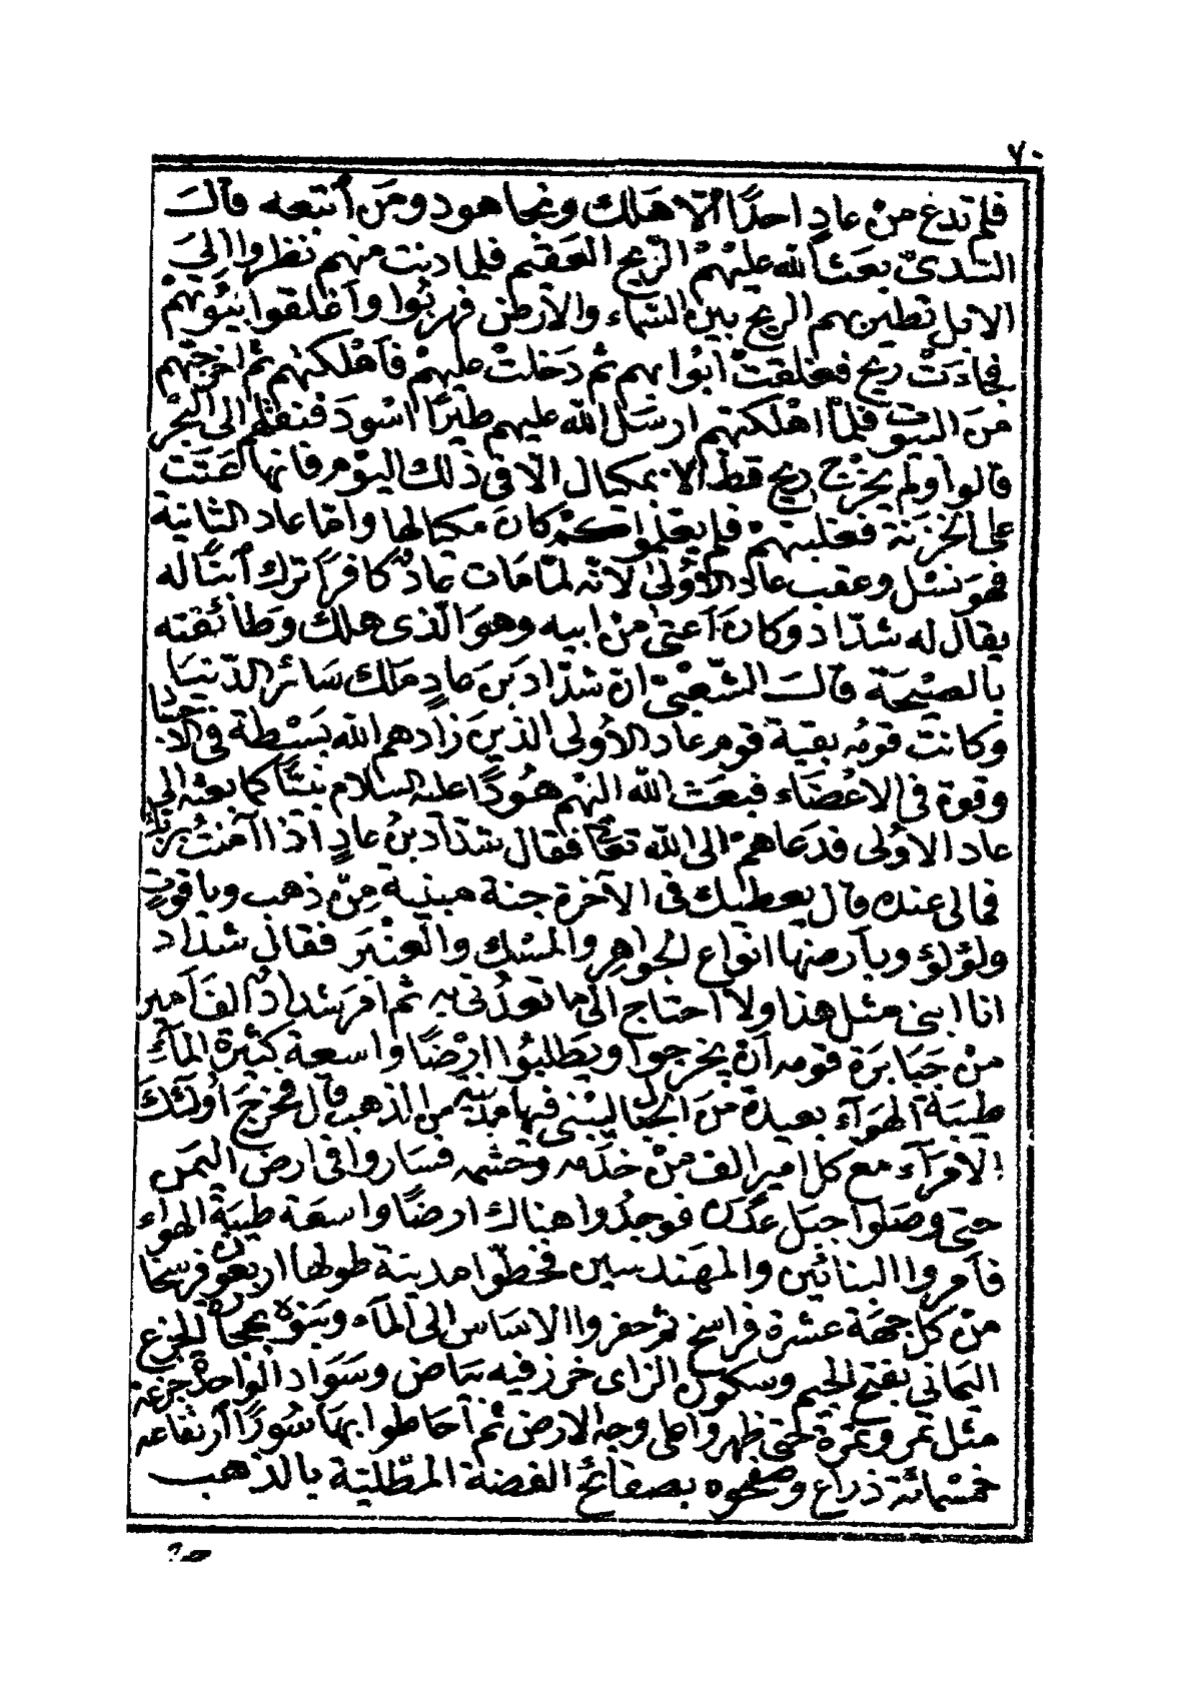 ٧٠
فلم تدع من عاد احدًا الا هلك ونجا هود ومن أتبعه قال
السّدىّ بعث الله عليهم الرّيح العقيم فلما دنت منهم نظروا الى
الابل تطير بهم الريح بين السّماء والأرض فهربوا وأغلقوا بيوتهم
فجاءت ريح فغلقت أبوابهم ثم دَخلتْ عليهمْ فأهْلكتهم ثم أخرجتهم
مّن البيوت فلمّا اهْلكتهم ارسَل الله عليهم طيرًا اسْودَ فنقلهم الى البحْر
قالوا ولم يخرج ريح قط الا بمكيال الّا فى ذلك اليوْم فانها عَتَتْ
على الخزنة فغلبتهمْ فلم يعلموا كمْ كان مكيالها وامّا عاد الثانية
فهو نسْل وعقب عاد الأولى لانّه لمّا مَات عادٌ كافرًا ترك أبنًا له
يقال له شدّاد وكان أعتى من ابيه وهوَ الّذى هلك وَطائفته
بالصيْحَة قالَ الشّعبىّ انّ شدّادَ بن عادٍ مَلك سَائر الدّنيَا
وكانتْ قومُه بقية قوم عاد الأولى الّذينَ زادهم الله بَسْطة فى الابدان
وقوة فى الاعْضَاء فبعَث الله اليْهم هُودًا عليه السلام نبيًّا كما بعثه الى
عاد الأولى فدعَاهمْ الى الله تعَالى فقال شدّاد بنُ عادٍ اذا آمنتُ بربّك
فما لى عنده قال يعطيك فى الآخرة جنة مبنية مِنّ ذهب وياقوتٍ
ولؤلؤ وبأرضها انواع الجواهِر والمسْك والعنْبَر فقال شداد
انا ابنى مثل هذا ولا احتاج الى ما تعدُنى به ثم امَر شدادٌ الفَ أمير
منْ جَبَابَرة قومه أن يخرجوا ويَطلبُوا ارْضًا واسعة كثيرة المآء
طيبَة الهوَآء بعيدة منَ الجبَال ليبْنى فيها مدينة من الذهب قال فخرجَ أولئك
الأمرَآء مع كل امير الف منْ خدَمه وحَشمه فسَاروا فى ارض اليمَن
حتى وصَلوا جبَل عدن فوجدُوا هناك ارضًا واسعَة طيبَة الهواء
فأمروا البنائين والمهندسين فخطّوا مدينة طولها اربعون فرسخا
منْ كل جهَة عشرة فراسخ ثم حفروا الاساس الى المآء وبَنوْه بحجارة الجزع
اليَمانى بفتح الجيم وسكون الزاى خرز فيه بيَاض وسَوَاد الواحدة جزعة
مثل تمر وتمرة حتى ظهر واعلى وجه الارض ثم أحاطوا بهَا سُورًا ارتفاعه
خمْسمائة ذراع وصفحوه بصفائح الفضة المطّلية بالذهب